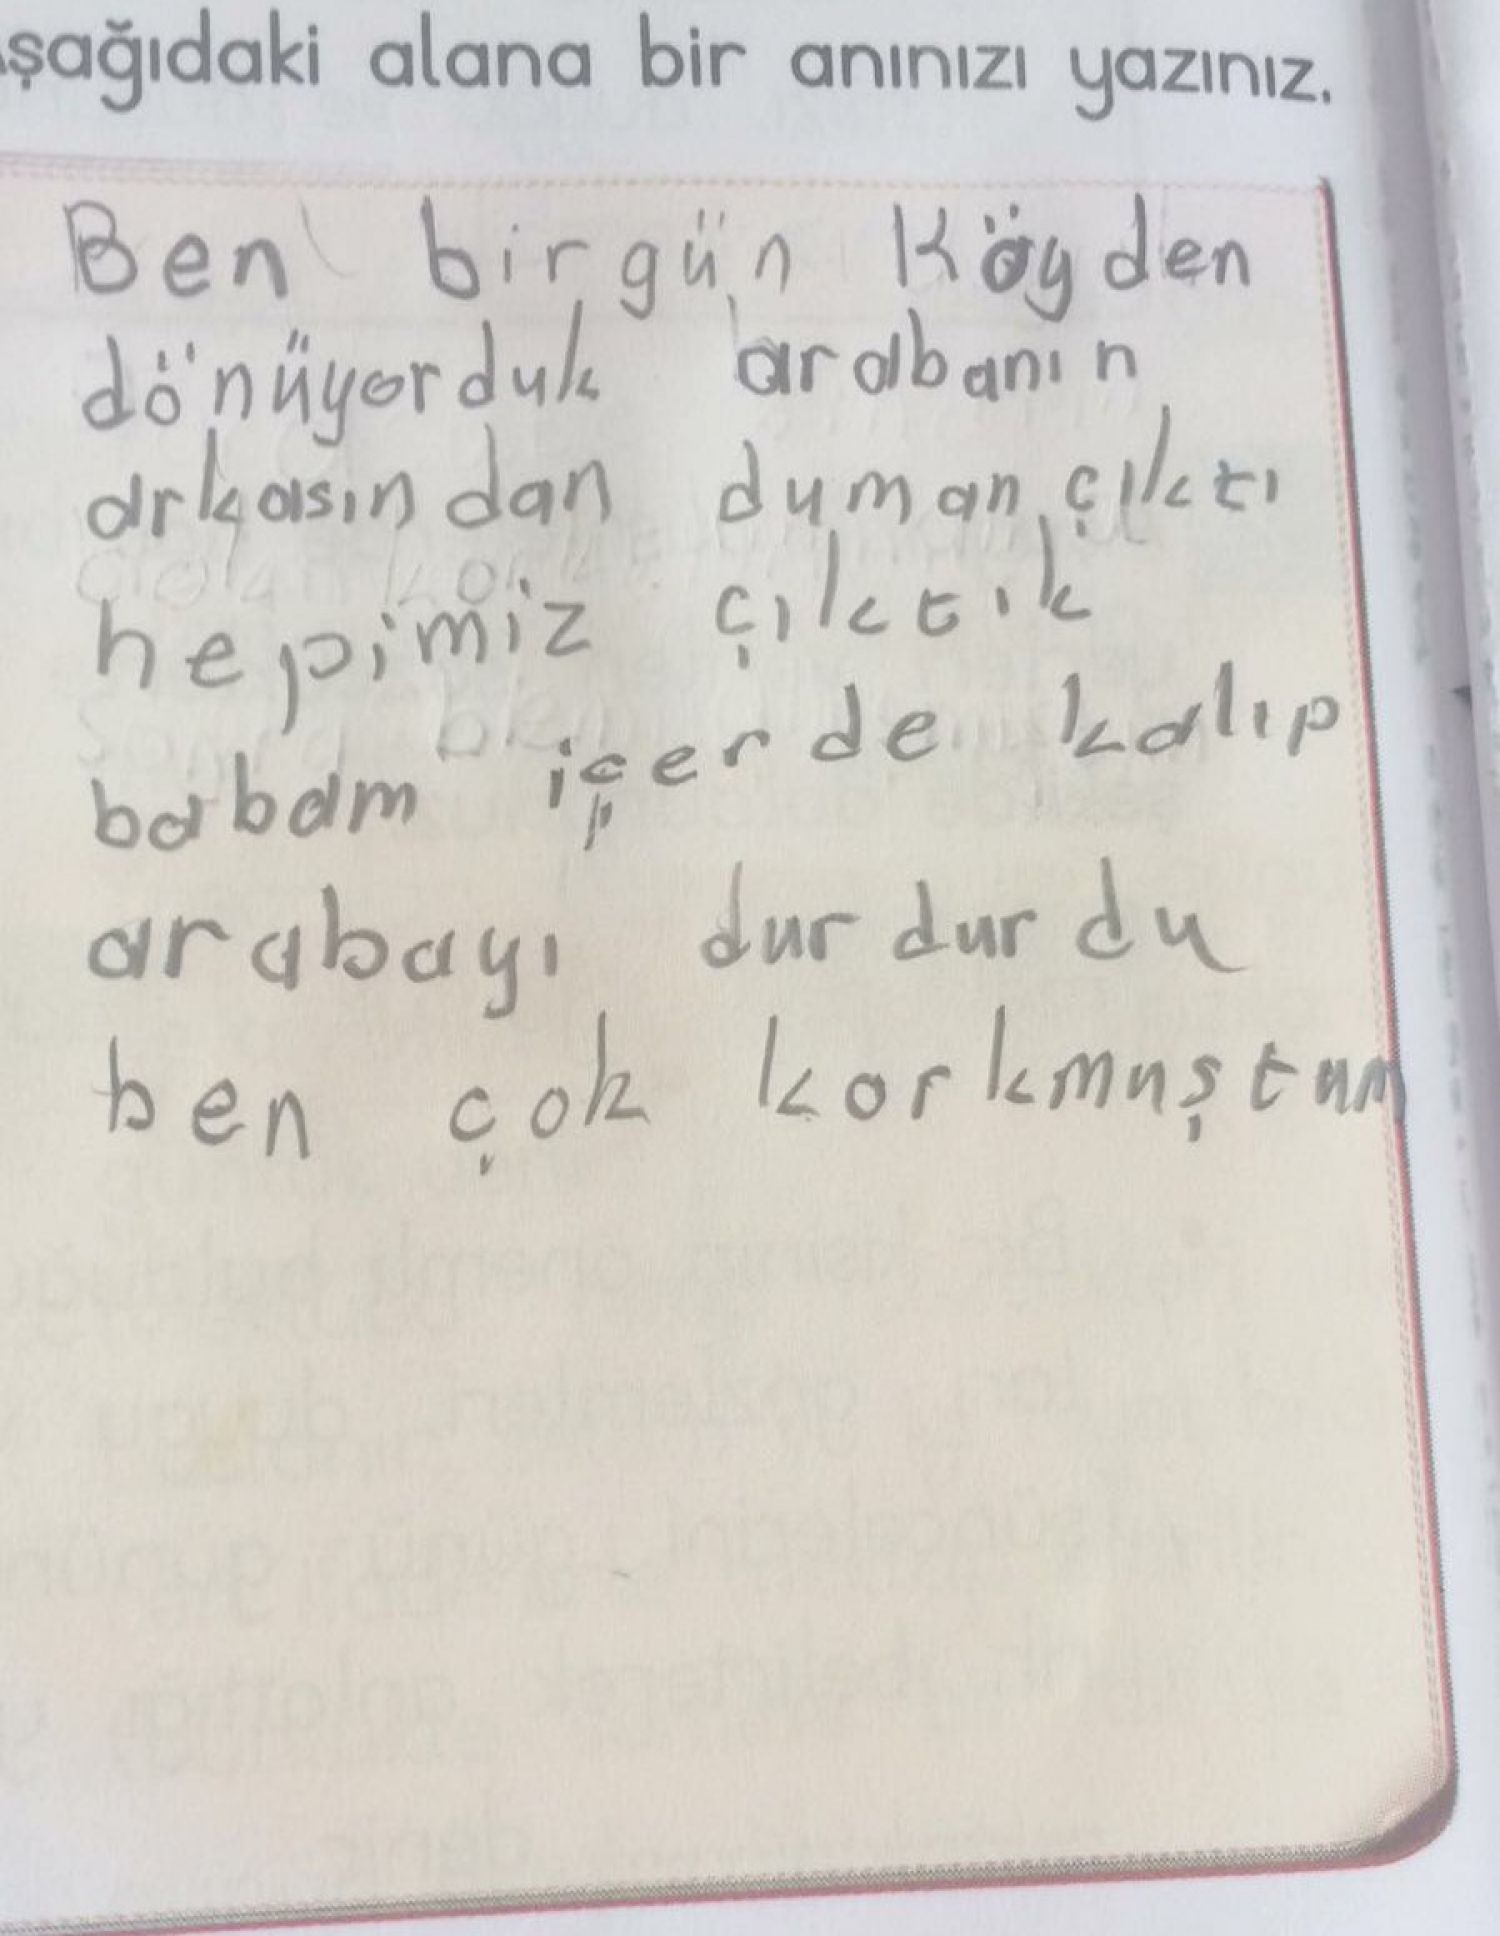 şağıdaki alana bir anınızı yazınız.
Ben birgün Köyden
dönüyorduk arabanın
arkasından duman çıktı
hepimiz çıktık
babam içerde kalıp
arabayı durdurdu
ben çok korkmuştum